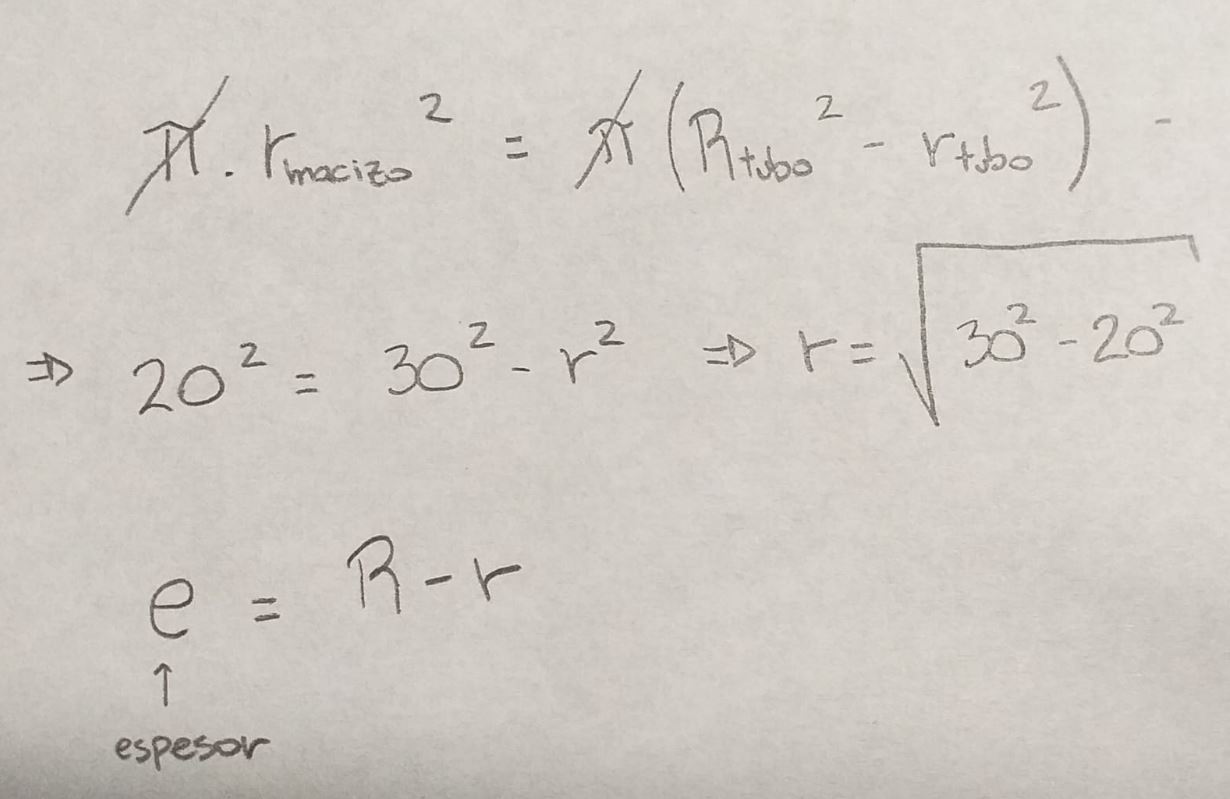 π · r_macizo² = π (R_tubo² - r_tubo²) -
⇒ 20² = 30² - r² ⇒ r = √(30² - 20²)
e = R - r
↑
espesor